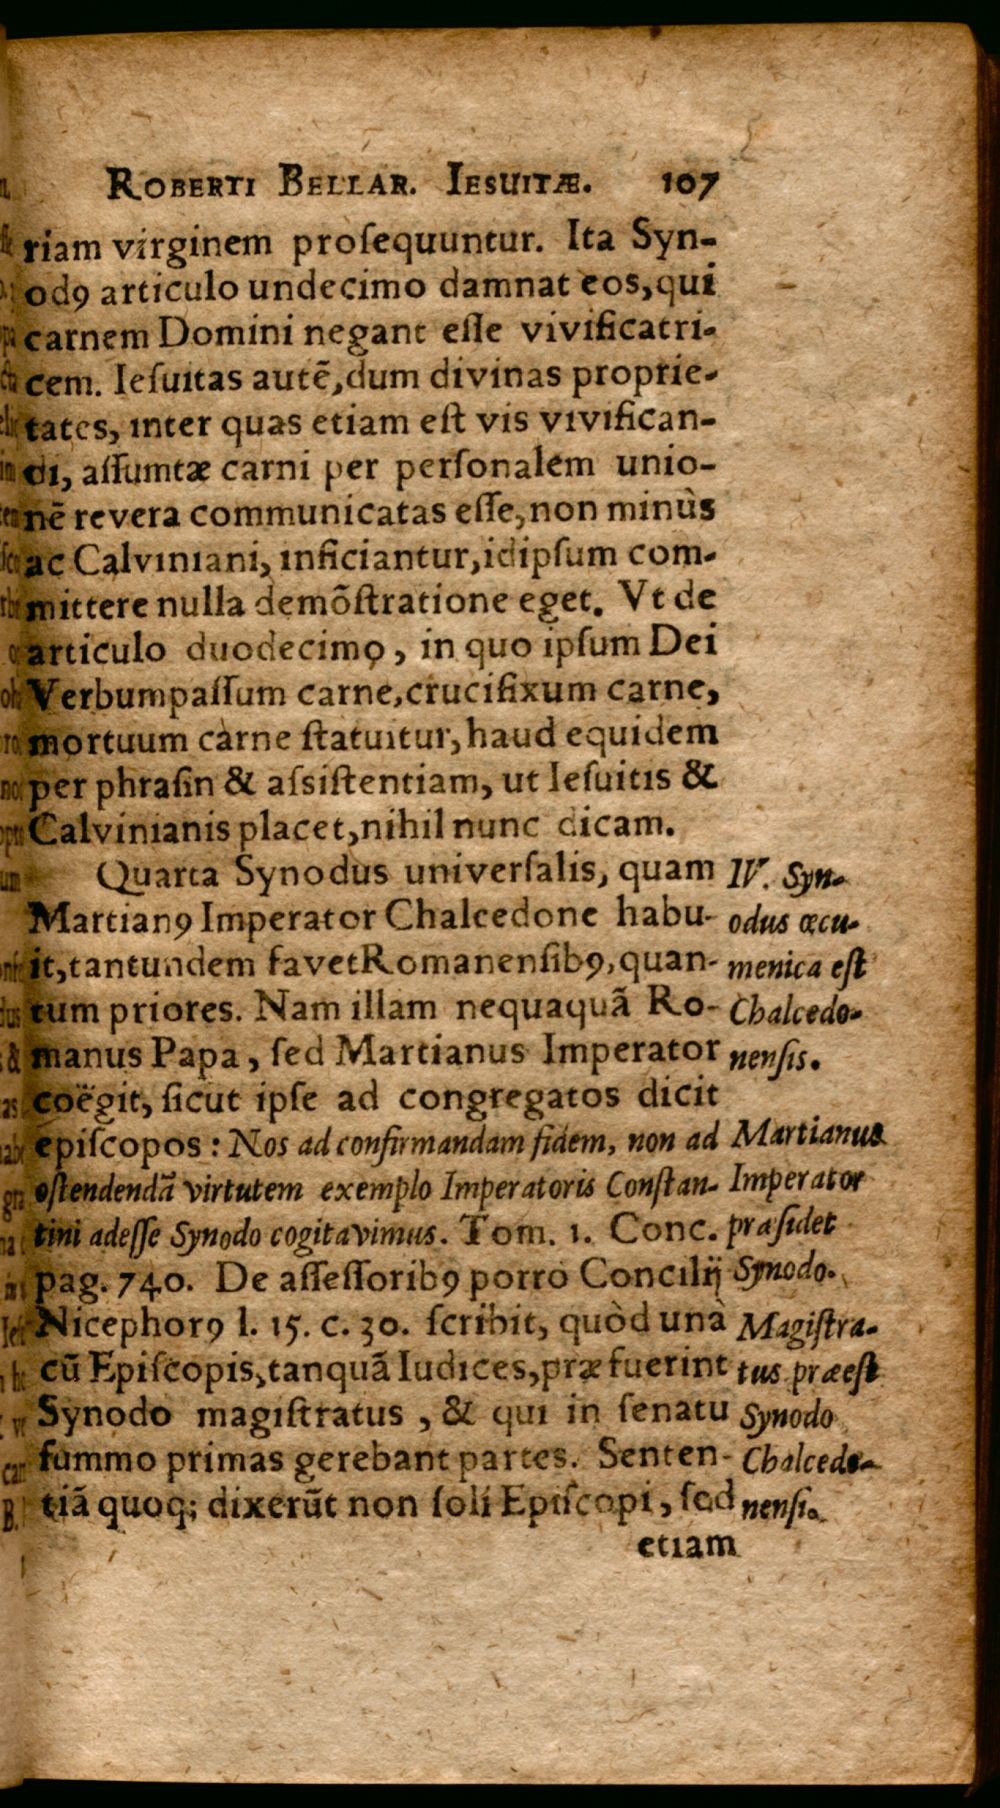 ROBERTI BELLAR. IESUITÆ. 107
riam virginem proſequuntur. Ita Syn-
odꝰ articulo undecimo damnat eos, qui
carnem Domini negant eſſe vivificatri-
cem. Ieſuitas autē, dum divinas proprie-
tates, inter quas etiam eſt vis vivifican-
di, aſſumtæ carni per perſonalem unio-
nē revera communicatas eſſe, non minùs
ac Calviniani, inficiantur, idipſum com-
mittere nulla demõſtratione eget. Vt de
articulo duodecimo, in quo ipſum Dei
Verbum paſſum carne, crucifixum carne,
mortuum carne ſtatuitur, haud equidem
per phraſin & aſsiſtentiam, ut Ieſuitis &
Calvinianis placet, nihil nunc dicam.
Quarta Synodus univerſalis, quam
Martianꝰ Imperator Chalcedone habu-
it, tantundem favet Romanenſibꝰ, quan-
tum priores. Nam illam nequaquã Ro-
manus Papa, ſed Martianus Imperator
coëgit, ſicut ipſe ad congregatos dicit
epiſcopos: Nos ad confirmandam fidem, non ad
oſtendendã virtutem exemplo Imperatoris Conſtan-
tini adeſſe Synodo cogitavimus. Tom. 1. Conc.
pag. 740. De aſſeſſoribꝰ porrò Concilij
Nicephorꝰ l. 15. c. 30. ſcribit, quòd unà
cū Epiſcopis, tanquã Iudices, præfuerint
Synodo magiſtratus, & qui in ſenatu
ſummo primas gerebant partes. Senten-
tiã quoq; dixerūt non ſoli Epiſcopi, ſed
etiam
IV. Syn-
odus œcu-
menica eſt
Chalcedo-
nenſis.
Martianus
Imperator
præſidet
Synodo.
Magiſtra-
tus præeſt
Synodo
Chalcedo-
nenſi.